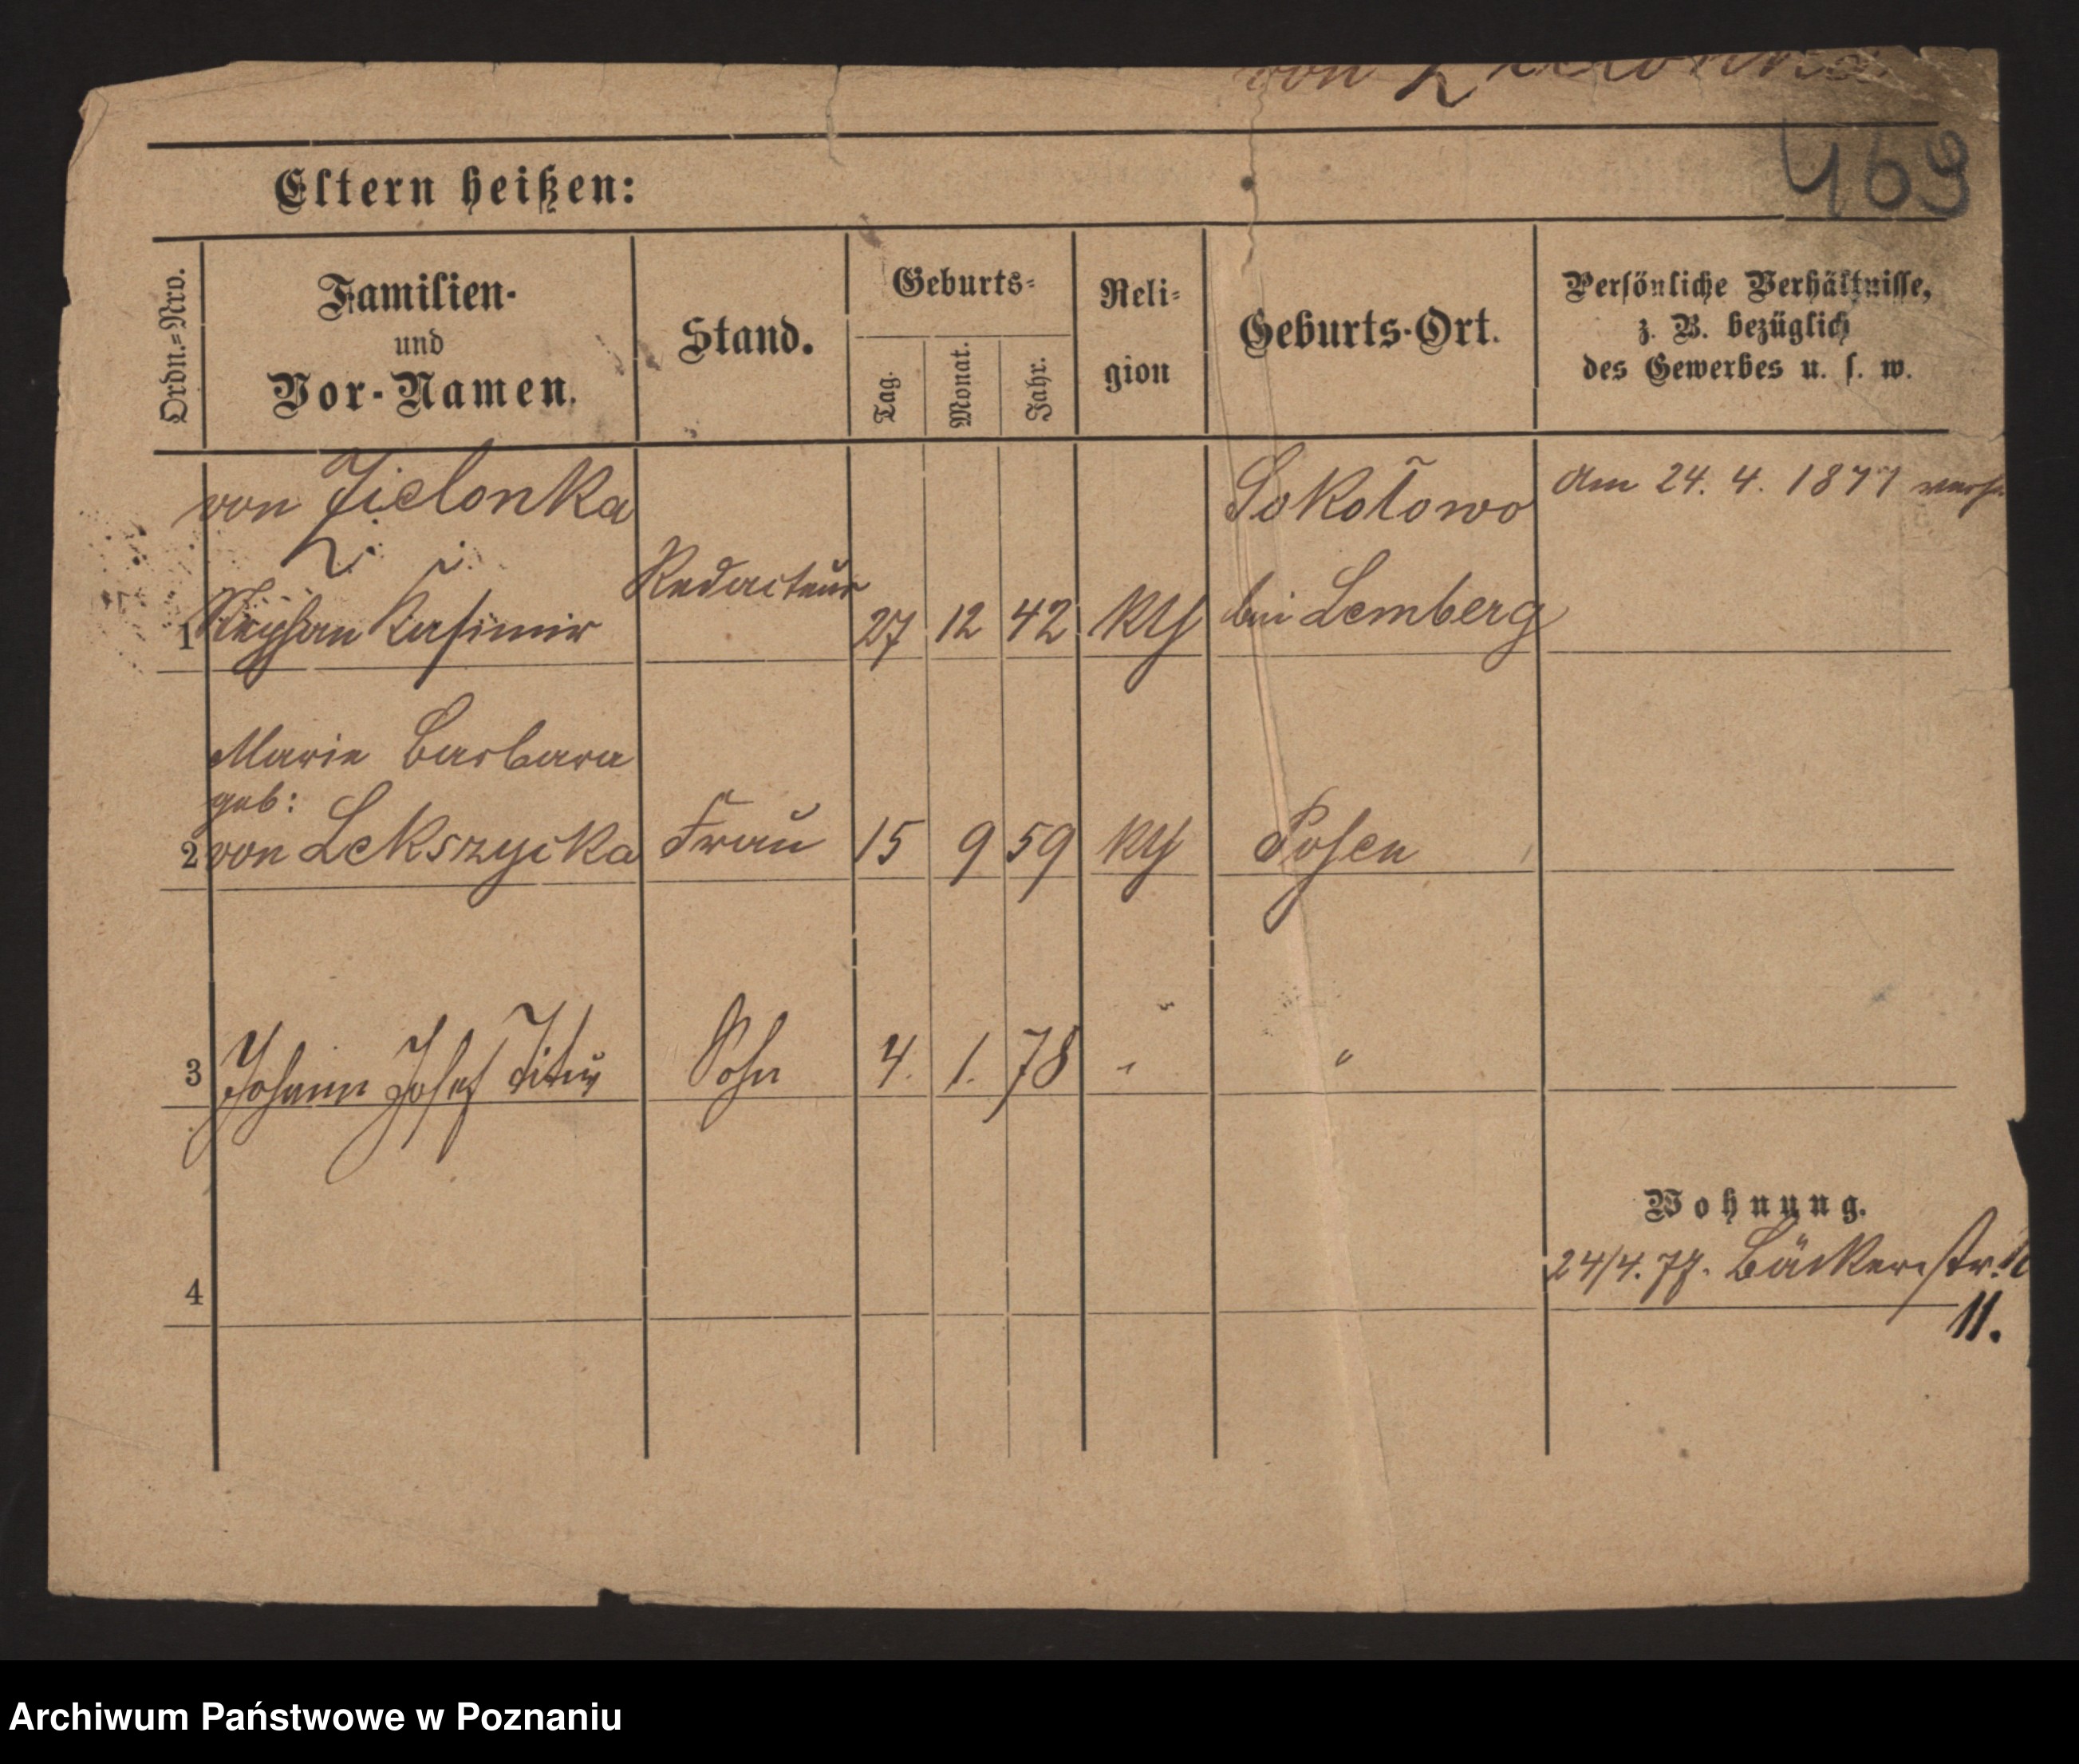 von Zielonka
469
Eltern heißen:
Ordn.-Nro.
Familien-
und
Vor-Namen.
Stand.
Geburts-
Tag.
Monat.
Jahr.
Reli-
gion
Geburts-Ort.
Persönliche Verhältnisse,
z. B. bezüglich
des Gewerbes u. s. w.
von Zielonka
Sokołowo
Am 24. 4. 1877
Z.
1 Stephan Kasimir Redacteur 27 12 42 kth bei Lemberg
Marie Barbara
geb:
2 von Lekszycka Frau 15 9 59 kth Posen
3 Johann Josef Titus Sohn 4. 1. 78 " "
Wohnung.
24/4. 77. Bäckerstr.
4
11.
Archiwum Państwowe w Poznaniu